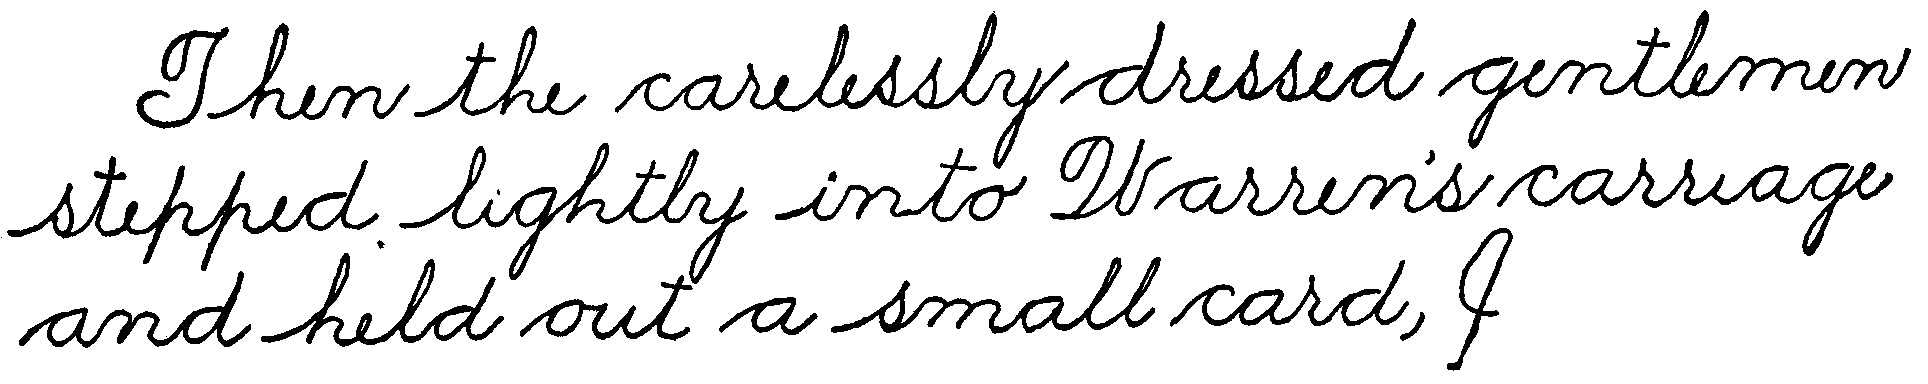 Then the carelessly dressed gentlemen
stepped lightly into Warren's carriage
and held out a small card, J